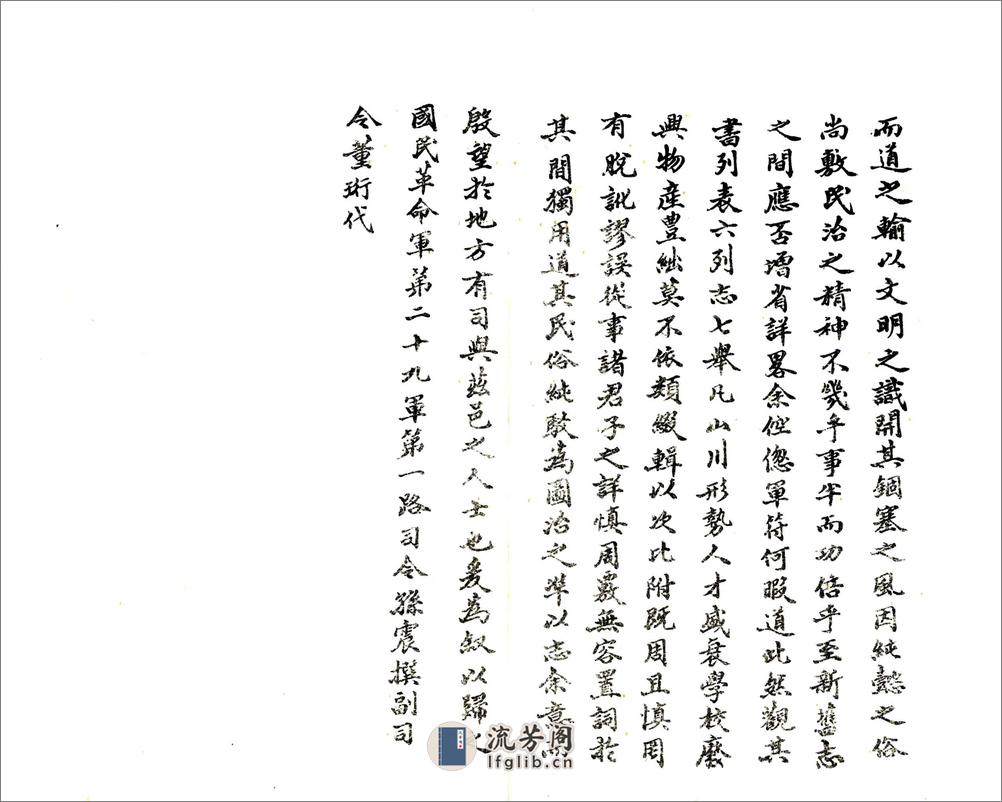 而道之輸以文明之識開其錮塞之風因純懿之俗
尚敷民治之精神不幾乎事半而功倍乎至新舊志
之間應否增省詳畧余倥傯軍符何暇道此然觀其
書列表六列志七舉凡山川形勢人才盛衰學校廢
興物產豊絀莫不依類綴輯以次比附既周且慎罔
有脫訛謬誤從事諸君子之詳慎周覈無容置詞於
其間獨用道其民俗純駁為圖治之準以志余意而
殷望於地方有司與茲邑之人士也爰為叙以歸之
國民革命軍第二十九軍第一路司令孫震撰副司
令董珩代
流芳阁
lfglib.cn